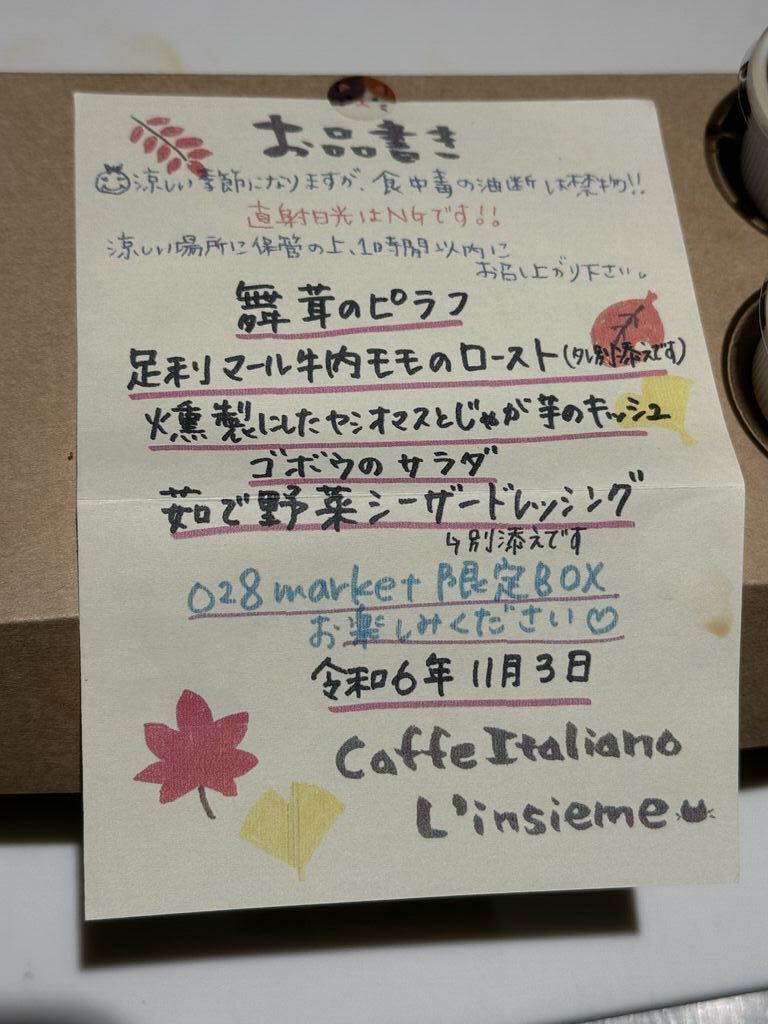 お品書き
涼しい季節になりますが、食中毒の油断は禁物!!
直射日光はNGです!!
涼しい場所に保管の上、1時間以内に
お召し上がり下さい。
舞茸のピラフ
足利マール牛内モモのロースト(タレ別添えです)
燻製にしたヤシオマスとじゃが芋のキッシュ
ゴボウのサラダ
茹で野菜シーザードレッシング
↳別添えです
028market 限定BOX
お楽しみください♡
令和6年11月3日
Caffe Italiano
L'insieme